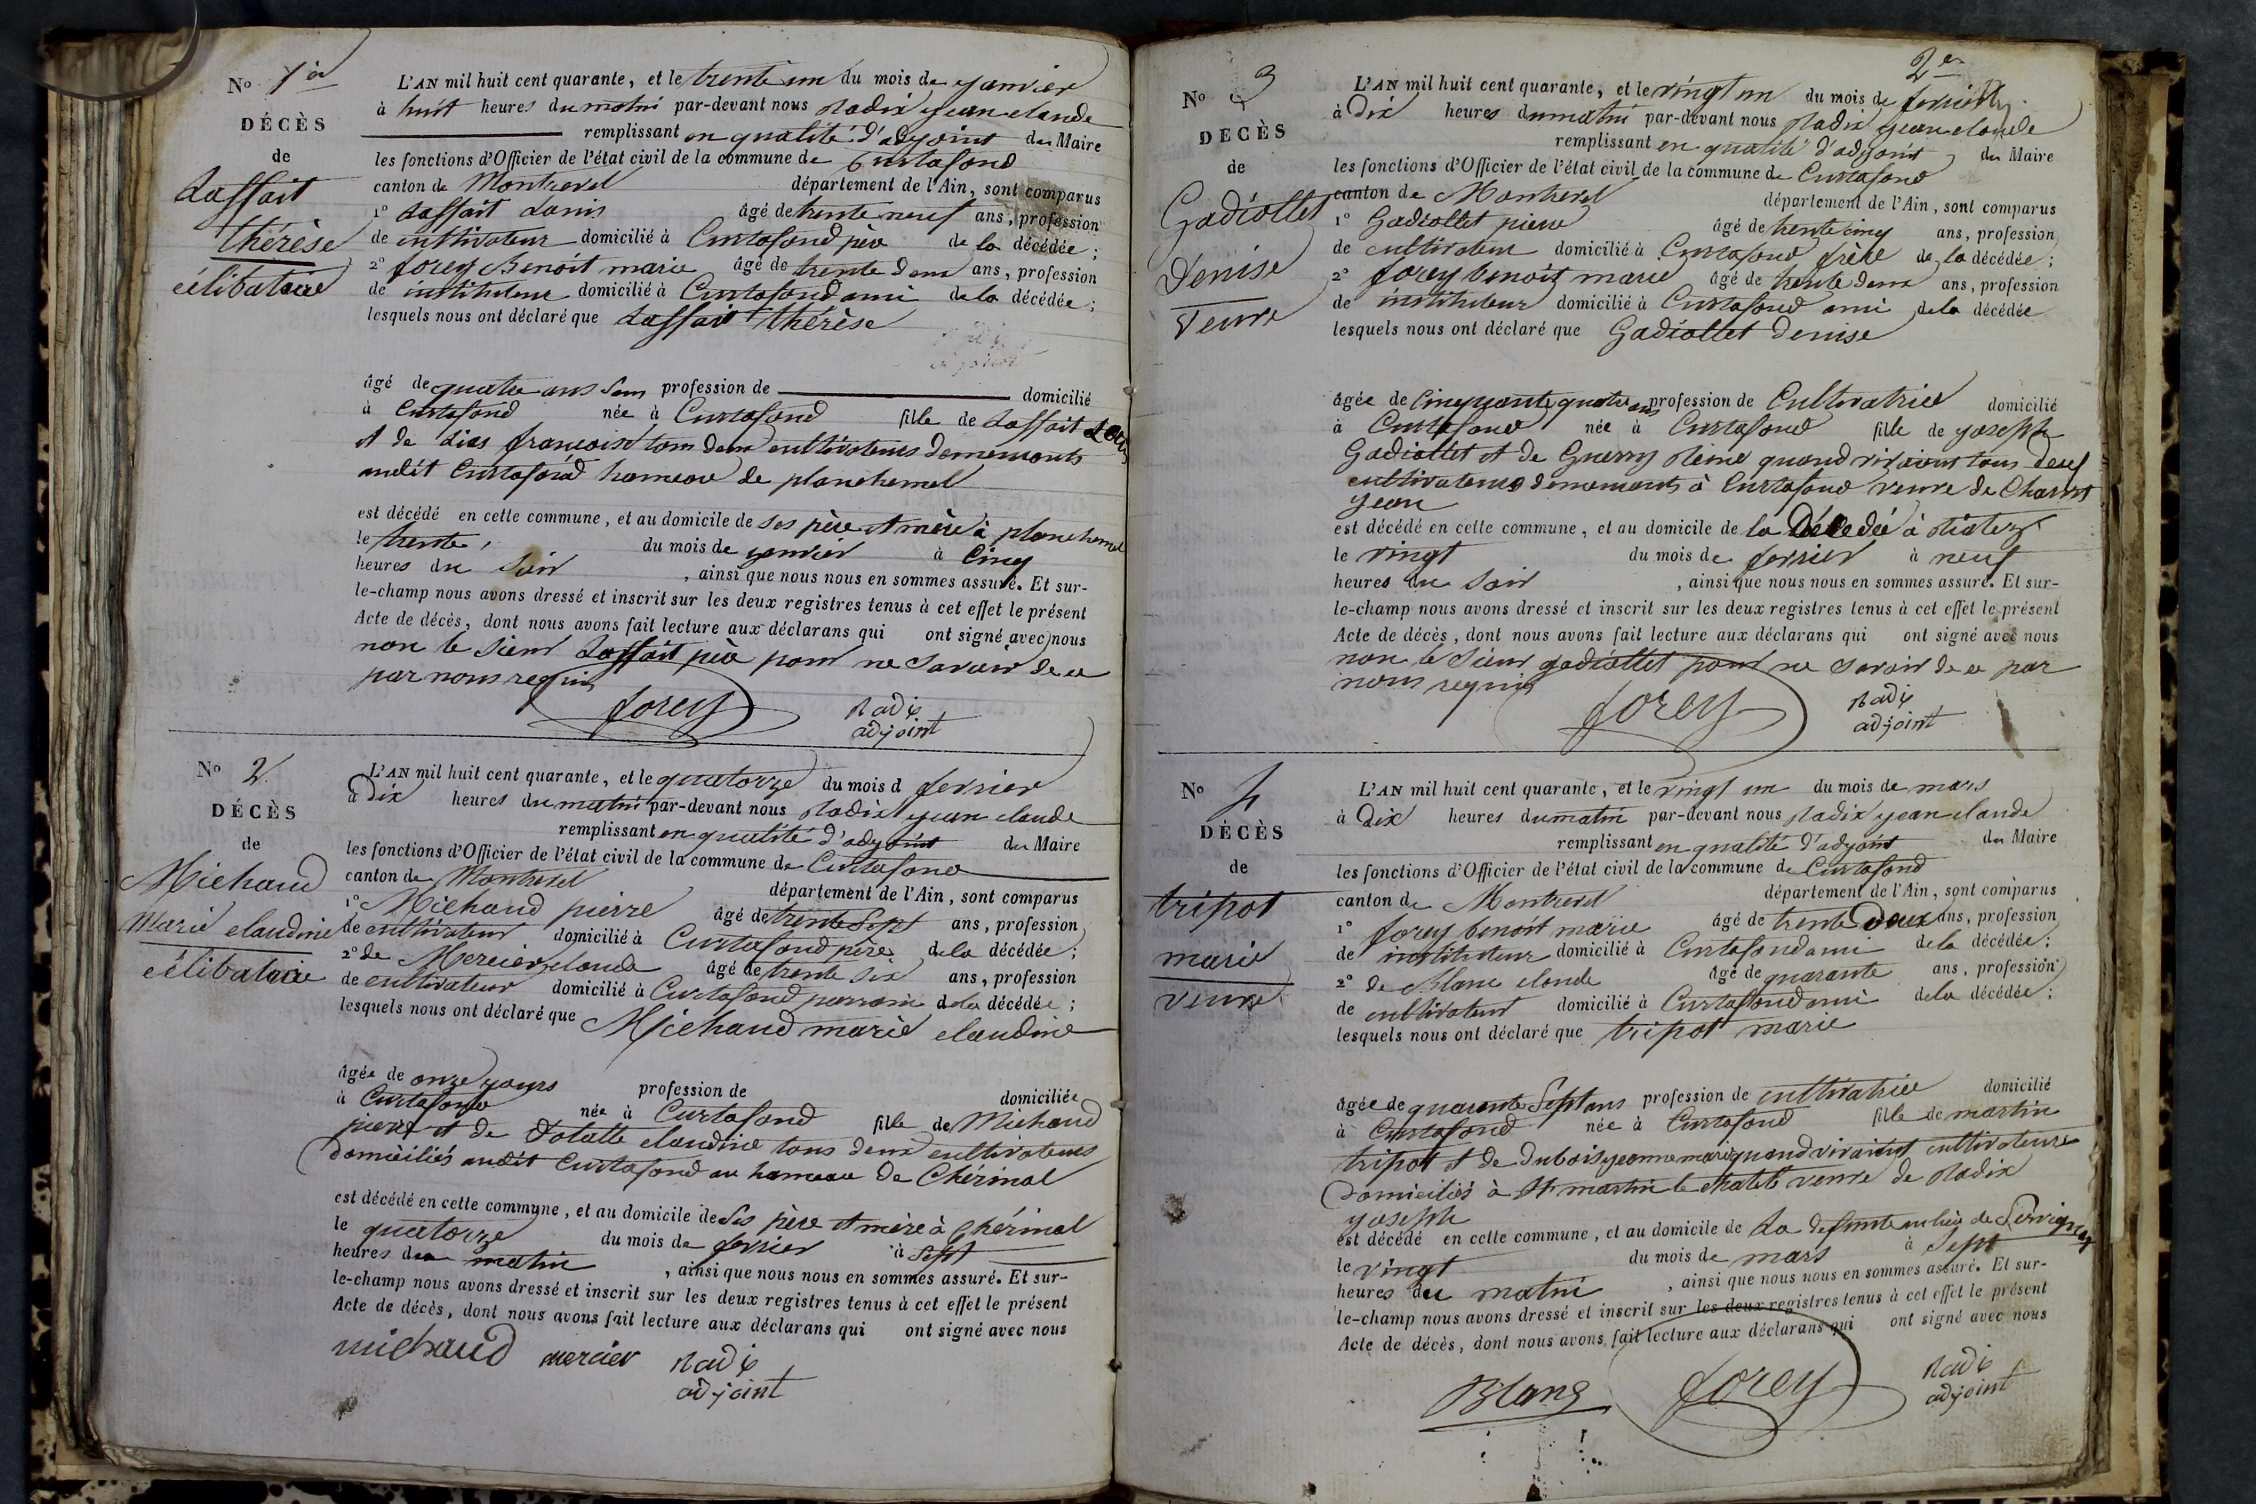 No 1er
DÉCÈS
de
Laffait
thérèse
célibataire
L'AN mil huit cent quarante, et le trente un du mois de janvier
à huit heures du matin par-devant nous Radix jean claude
remplissant en qualité d'adjoint du Maire
les fonctions d'Officier de l'état civil de la commune de Curtafond
canton de Montrevel département de l'Ain, sont comparus
1° Laffait Louis âgé de trente neuf ans, profession
de cultivateur domicilié à Curtafond père de la décédée;
2° forey Benoit marie âgé de trente deux ans, profession
de instituteur domicilié à Curtafond ami de la décédée;
lesquels nous ont déclaré que Laffait thérèse
âgé de quatre ans sans profession de domicilié
à Curtafond née à Curtafond fille de Laffait Louis
et de françoise tous deux cultivateurs demeurants
audit Curtafond hameau de planchemel
est décédé en cette commune, et au domicile de ses père et mère à planchemel
le trente du mois de janvier à cinq
heures du soir, ainsi que nous nous en sommes assuré. Et sur-
le-champ nous avons dressé et inscrit sur les deux registres tenus à cet effet le présent
Acte de décès, dont nous avons fait lecture aux déclarans qui ont signé avec nous
non le sieur Laffait père pour ne savoir de ce
par nous requis
forey Radix
adjoint
No 2
DÉCÈS
de
Michaud
Marie claudine
célibataire
L'AN mil huit cent quarante, et le quatorze du mois d fevrier
à Dix heures du matin par-devant nous Radix jean claude
remplissant en qualité d'adjoint du Maire
les fonctions d'Officier de l'état civil de la commune de Curtafond
canton de Montrevel département de l'Ain, sont comparus
1° Michaud pierre âgé de trente sept ans, profession
de cultivateur domicilié à Curtafond père de la décédée;
2° de Mercier claude âgé de trente six ans, profession
de cultivateur domicilié à Curtafond parrain de la décédée;
lesquels nous ont déclaré que Michaud marie claudine
âgée de onze jours profession de domiciliée
à Curtafond née à Curtafond fille de Michaud
pierre et de claudine tous deux cultivateurs
Domiciliés audit Curtafond au hameau de Chérinal
est décédé en cette commune, et au domicile de ses père et mère à Chérinal
le quatorze du mois de fevrier à sept
heures du matin, ainsi que nous nous en sommes assuré. Et sur-
le-champ nous avons dressé et inscrit sur les deux registres tenus à cet effet le présent
Acte de décès, dont nous avons fait lecture aux déclarans qui ont signé avec nous
michaud mercier Radix
adjoint
2e
No 3
DÉCÈS
de
Gadiollet
Denise
Veuve
L'AN mil huit cent quarante, et le vingt un du mois de fevrier
à Dix heures du matin par-devant nous Radix jean claude
remplissant en qualité d'adjoint du Maire
les fonctions d'Officier de l'état civil de la commune de Curtafond
canton de Montrevel département de l'Ain, sont comparus
1° Gadiollet pierre âgé de trente cinq ans, profession
de cultivateur domicilié à Curtafond frère de la décédée;
2° forey benoit marie âgé de trente deux ans, profession
de instituteur domicilié à Curtafond ami de la décédée
lesquels nous ont déclaré que Gadiollet Denise
âgée de cinquante quatre ans profession de Cultivatrice domicilié
à Curtafond née à Curtafond fille de joseph
Gadiollet et de Guerry quand vivaient tous deux
cultivateurs demeurants à Curtafond veuve de
jean
est décédé en cette commune, et au domicile de la Décédée à
le vingt du mois de fevrier à neuf
heures du soir, ainsi que nous nous en sommes assuré. Et sur-
le-champ nous avons dressé et inscrit sur les deux registres tenus à cet effet le présent
Acte de décès, dont nous avons fait lecture aux déclarans qui ont signé avec nous
non le sieur gadiollet pour ne savoir de ce par
nous requis
forey Radix
adjoint
No 4
DÉCÈS
de
tripot
marie
veuve
L'AN mil huit cent quarante, et le vingt un du mois de mars
à Dix heures du matin par-devant nous Radix jean claude
remplissant en qualité d'adjoint du Maire
les fonctions d'Officier de l'état civil de la commune de Curtafond
canton de Montrevel département de l'Ain, sont comparus
1° forey benoit marie âgé de trente Deux ans, profession
de instituteur domicilié à Curtafond ami de la décédée;
2° de Blanc claude âgé de quarante ans, profession
de cultivateur domicilié à Curtafond ami de la décédée;
lesquels nous ont déclaré que tripot marie
âgée de quarante sept ans profession de cultivatrice domicilié
à Curtafond née à Curtafond fille de martin
tripot et de Dubois jeanne marie quand vivaient cultivateurs
Domiciliés à St martin le chatel veuve de Radix
joseph
est décédé en cette commune, et au domicile de La defunte au lieu de Servignat
le vingt du mois de mars à sept
heures du matin, ainsi que nous nous en sommes assuré. Et sur-
le-champ nous avons dressé et inscrit sur les deux registres tenus à cet effet le présent
Acte de décès, dont nous avons fait lecture aux déclarans qui ont signé avec nous
Blanc forey Radix
adjoint